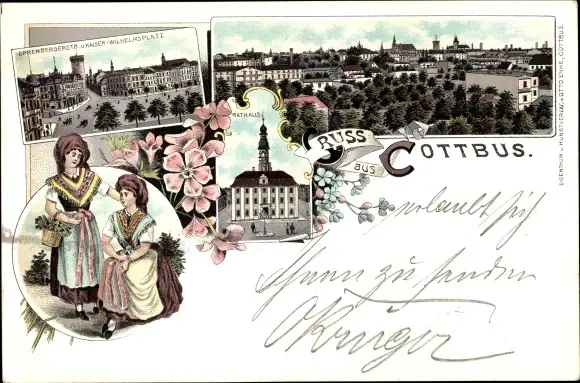 SPREMBERGERSTR. U. KAISER-WILHELMSPLATZ.
RATHAUS
GRUSS
aus
COTTBUS.
EIGENTHUM U. KUNSTVERLAG v. OTTO ENKE, COTTBUS.
erlaubt sich
Ihnen zu senden
O Krüger